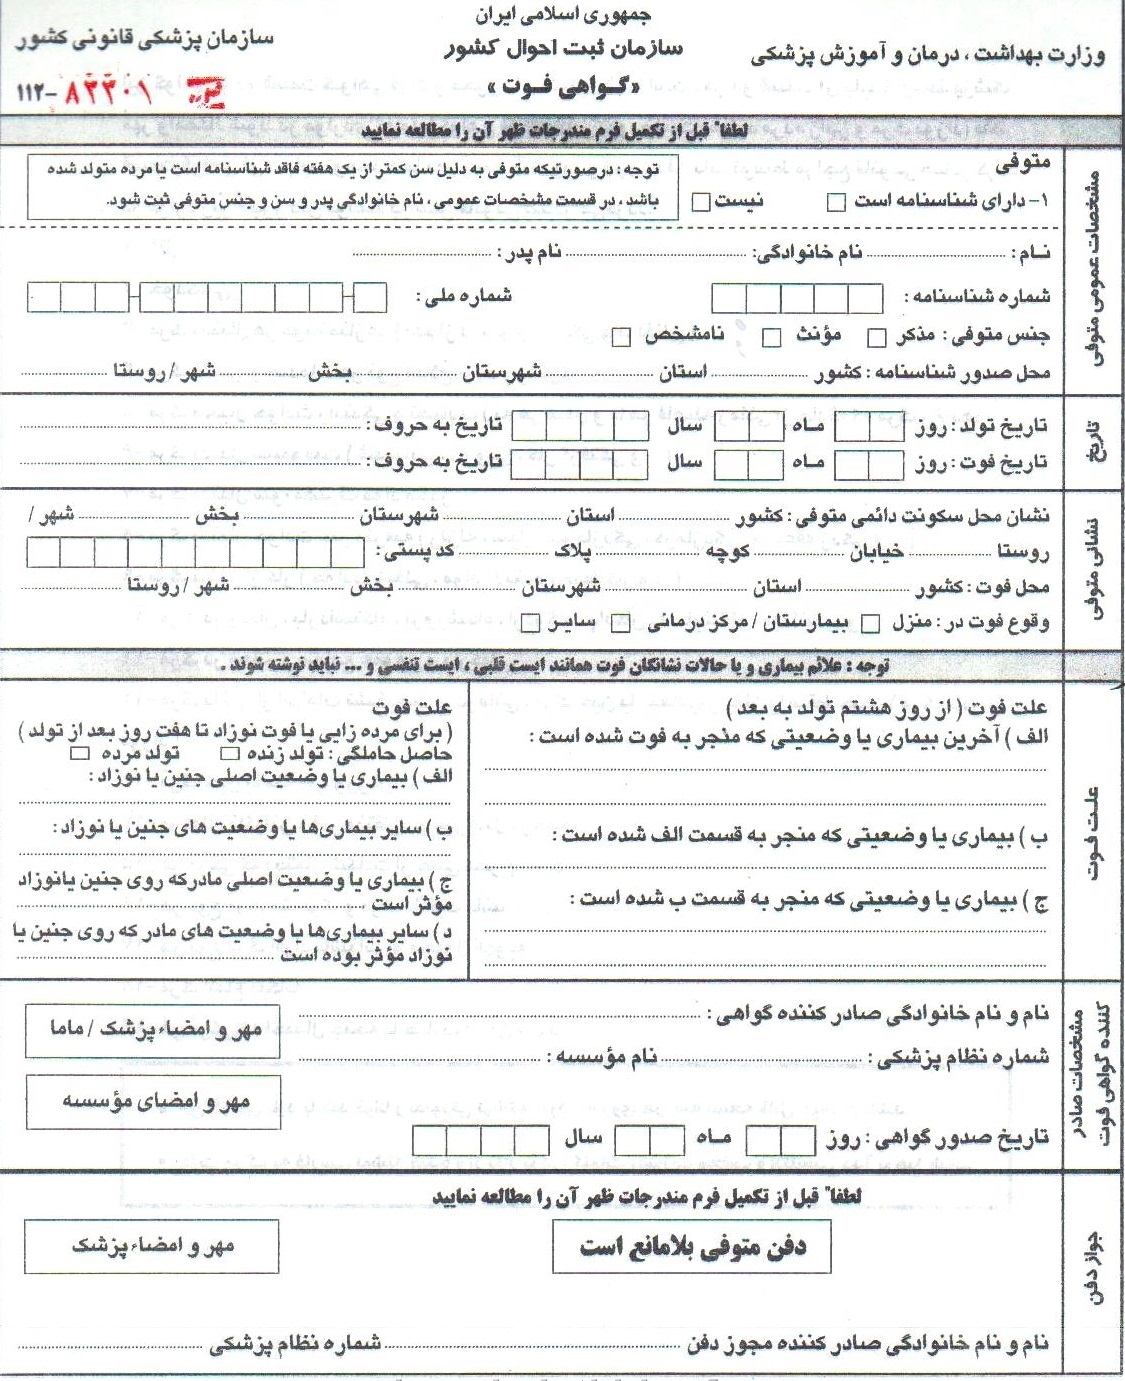 جمهوری اسلامی ایران
وزارت بهداشت ، درمان و آموزش پزشکی
سازمان ثبت احوال کشور
سازمان پزشکی قانونی کشور
«گواهی فوت»
۱۱۲-۸۲۲۰۱
لطفاً قبل از تکمیل فرم مندرجات ظهر آن را مطالعه نمایید
مشخصات عمومی متوفی
متوفی
۱- دارای شناسنامه است نیست
توجه : درصورتیکه متوفی به دلیل سن کمتر از یک هفته فاقد شناسنامه است یا مرده متولد شده
باشد ، در قسمت مشخصات عمومی ، نام خانوادگی پدر و سن و جنس متوفی ثبت شود.
نـام : نام خانوادگی: نام پدر :
شماره شناسنامه : شماره ملی :
جنس متوفی : مذکر مؤنث نامشخص
محل صدور شناسنامه : کشور استان شهرستان بخش شهر / روستا
تاریخ
تاریخ تولد : روز مـاه سال تاریخ به حروف :
تاریخ فوت : روز مـاه سال تاریخ به حروف :
نشانی متوفی
نشان محل سکونت دائمی متوفی : کشور استان شهرستان بخش شهر /
روستا خیابان کوچه پلاک کد پستی :
محل فوت : کشور استان شهرستان بخش شهر / روستا
وقوع فوت در : منزل بیمارستان / مرکز درمانی سایـر
توجه : علائم بیماری و یا حالات نشانگان فوت همانند ایست قلبی ، ایست تنفسی و ... نباید نوشته شوند .
علت فـوت
علت فوت ( از روز هشتم تولد به بعد )
الف ) آخرین بیماری یا وضعیتی که منجر به فوت شده است :
ب ) بیماری یا وضعیتی که منجر به قسمت الف شده است :
ج ) بیماری یا وضعیتی که منجر به قسمت ب شده است :
علت فوت
( برای مرده زایی یا فوت نوزاد تا هفت روز بعد از تولد )
حاصل حاملگی : تولد زنده تولد مرده
الف ) بیماری یا وضعیت اصلی جنین یا نوزاد :
ب ) سایر بیماری‌ها یا وضعیت های جنین یا نوزاد :
ج ) بیماری یا وضعیت اصلی مادرکه روی جنین یانوزاد
مؤثر است
د ) سایر بیماری‌ها یا وضعیت های مادر که روی جنین یا
نوزاد مؤثر بوده است
مشخصات صادر
کننده گواهی فوت
نام و نام خانوادگی صادر کننده گواهی :
مهر و امضاء پزشک / ماما
شماره نظام پزشکی : نام مؤسسه :
مهر و امضای مؤسسه
تاریخ صدور گواهی : روز مـاه سال
جواز دفن
لطفاً قبل از تکمیل فرم مندرجات ظهر آن را مطالعه نمایید
دفن متوفی بلامانع است
مهر و امضاء پزشک
نام و نام خانوادگی صادر کننده مجوز دفن شماره نظام پزشکی